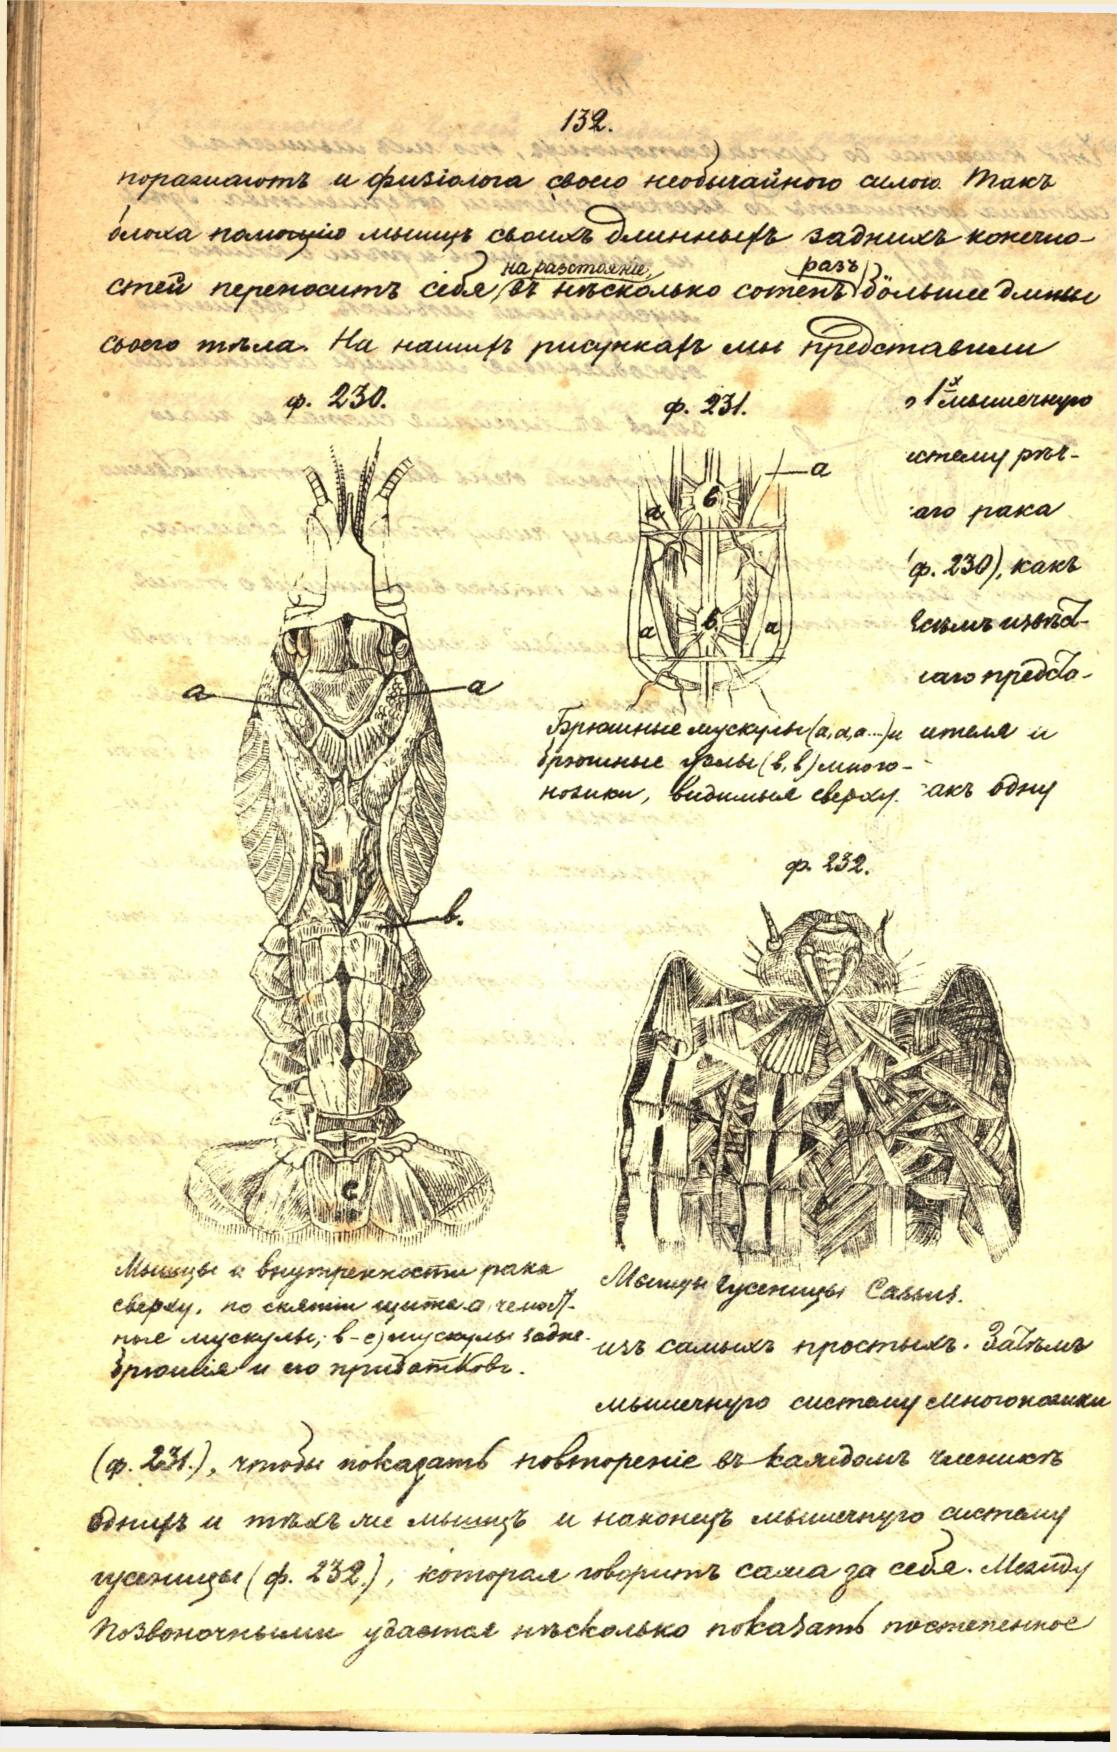 132.
поражаютъ и физіолога своею необычайною силою. Такъ
блоха помощію мышцъ своихъ длинныхъ заднихъ конечно-
стей переноситъ себя на разстояніе, въ нѣсколько сотенъ разъ большее длины
своего тѣла. На нашихъ рисункахъ мы представили
ф. 230.
ф. 231.
1х мышечную
стему рѣч-
аго рака
ф. 230), какъ
всѣмъ извѣст-
наго предста-
ителя и
акъ одну
a
a
b
a
b
a
a
a
b.
c
Брюшные мускулы (a, a, a...) и
брюшные узлы (b, b) много-
ножки, видимыя сверху.
ф. 232.
Мышцы и внутренности рака
сверху, по снятіи щита a, челюст-
ные мускулы; b-c) мускулы задне-
брюшія и его придатковъ.
Мышцы гусеницы
изъ самыхъ простыхъ. Затѣмъ
мышечную систему многоножки
(ф. 231.), чтобы показать повтореніе въ каждомъ членикѣ
однихъ и тѣхъ же мышцъ и наконецъ мышечную систему
гусеницы (ф. 232.), которая говоритъ сама за себя. Между
Позвоночными удается нѣсколько показать постепенное